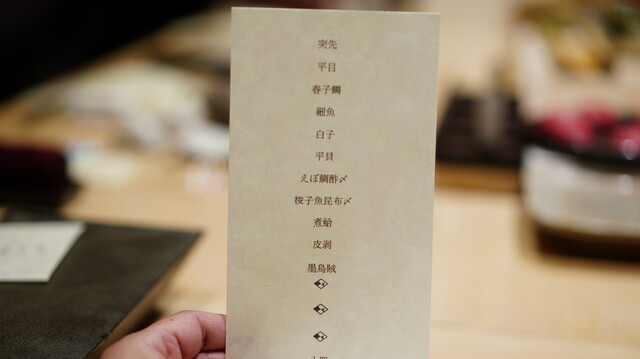 突先
平目
春子鯛
細魚
白子
平貝
えぼ鯛酢〆
梭子魚昆布〆
煮蛤
皮剥
墨烏賊